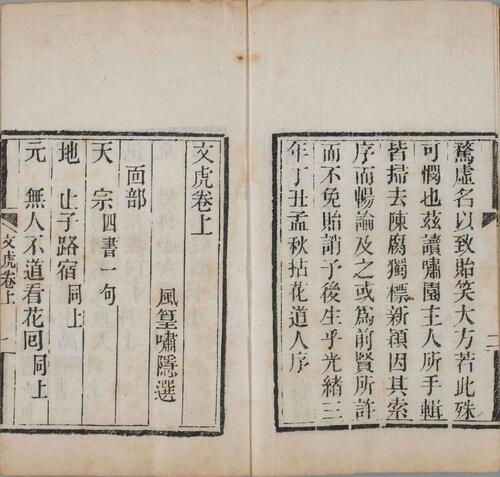 騖虛名以致貽笑大方若此殊
可憫也茲讀嘯園主人所手輯
皆掃去陳腐獨標新穎因其索
序而暢論及之或為前賢所許
而不免貽誚予後生乎光緒三
年丁丑孟秋拈花道人序
二
文虎卷上
風篁嘯隱選
面部
天 宗四書一句
地 止子路宿同上
元 無人不道看花囘同上
文虎卷上 一